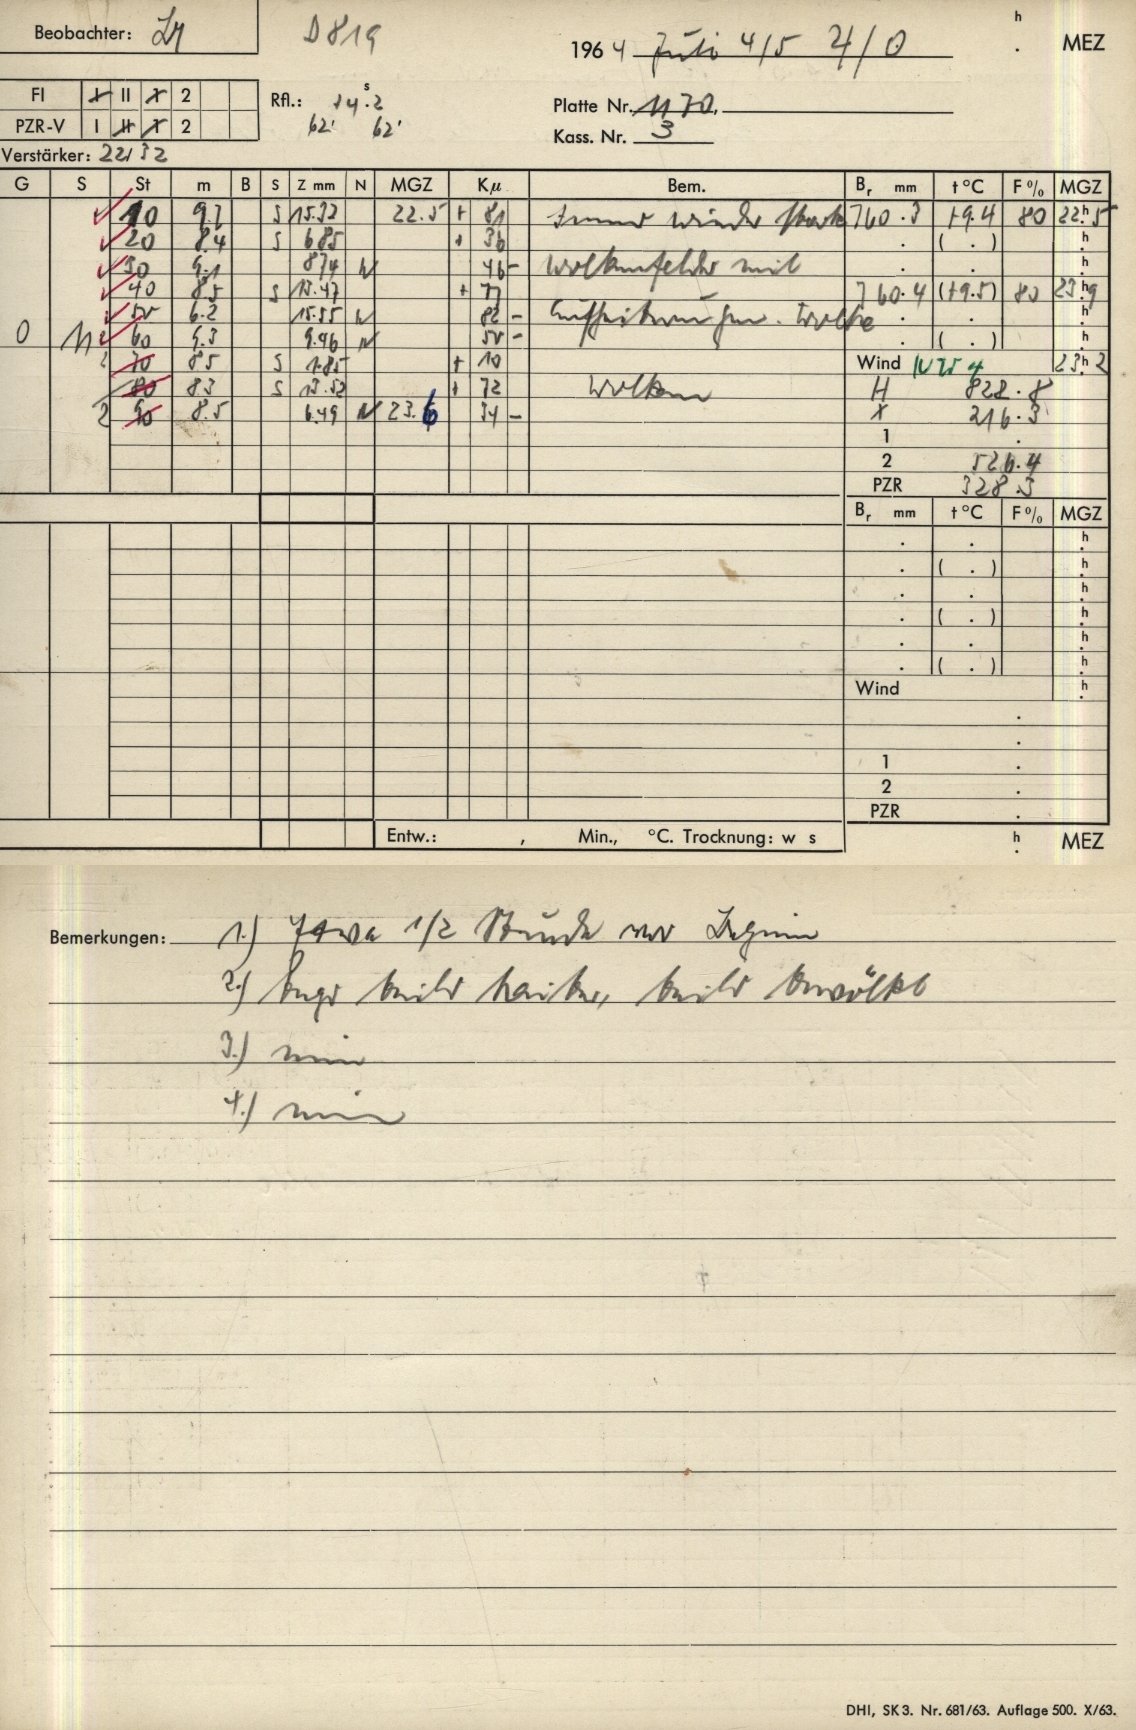 Beobachter:
D 819
h
1964 Juli 4/5 4/0 . MEZ
FI I II 1 2
PZR-V I II 1 2
Rfl.: +4 s . 2
62' 62'
Platte Nr. 1170,
Kass. Nr. 3
Verstärker: 22/32
G S St m B S Z mm N MGZ Kµ Bem. Br mm t °C F % MGZ
10 9.7 S 15.32 22.5 + 81 Immer wieder stark 760.3 +9.4 80 22h.5
20 8.4 S 6.85 + 36 . ( . ) h.
30 9.1 8.74 N 46 - Wolkenfelder mit . . h.
40 8.5 S 13.47 + 77 760.4 (+9.5) 80 23h.9
50 6.2 15.55 N 82 - Aufheiterungen. Wolke . . h.
0 60 9.3 9.96 N 50 - . ( . ) h.
70 8.5 S 1.85 + 10 Wind NW 4 23h.2
80 8.3 S 13.52 + 72 Wolken H 828.8
2 90 8.5 6.49 N 23.6 34 - X 216.3
1 .
2 526.4
PZR 328.3
Br mm t °C F % MGZ
. . h.
. ( . ) h.
. . h.
. ( . ) h.
. . h.
. ( . ) h.
Wind h.
.
.
1 .
2 .
PZR .
Entw.: , Min., °C. Trocknung: w s h. MEZ
Bemerkungen: 1.) Etwa 1/2 Stunde vor Beginn
2.) teils heiter, teils bewölkt
3.) nein
4.) nein
DHI, SK 3. Nr. 681/63. Auflage 500. X/63.